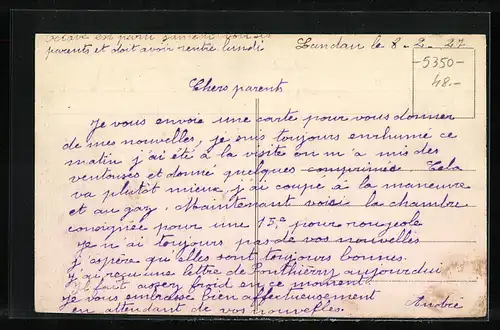 est parti samedi
parents et doit avoir rentré lundi
Landau le 8-2-27
-5350-
48.-
Chers parent
Je vous envoie une carte pour vous donner
de mes nouvelles, je suis toujours enrhumé ce
matin j'ai été à la visite on m'a mis des
ventouses et donné quelques comprimés. Cela
va plutôt mieux, j'ai coupé à la maneuvre
et au gaz. Maintenant voici la chambre
consignée pour une 15e pour rougeole
Je n'ai toujours pas de vos nouvelles
j'espère qu'elles sont toujours bonnes.
j'ai reçu une lettre de Ponthierry aujourdui
Il fait assez froid en ce moment.
je vous embrasse bien affectueusement
en attendant de vos nouvelles.
André